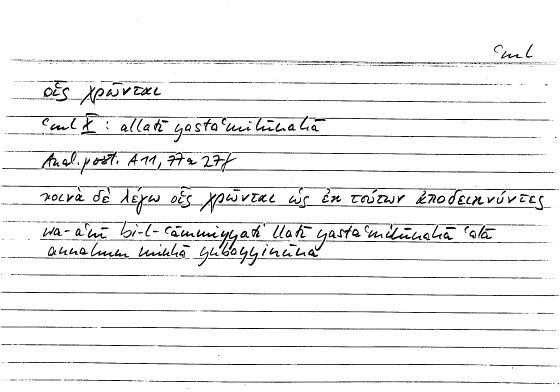 ʿml
οἷς χρῶνται
ʿml X : allatī yastaʿmilūnahā
Anal. post. A 11, 77a 27f
κοινὰ δὲ λέγω οἷς χρῶνται ὡς ἐκ τούτων ἀποδεικνύντες
wa-aʿnī bi-l-ʿāmmiyyati llatī yastaʿmilūnahā ʿalā
annahum minhā yubayyinūna